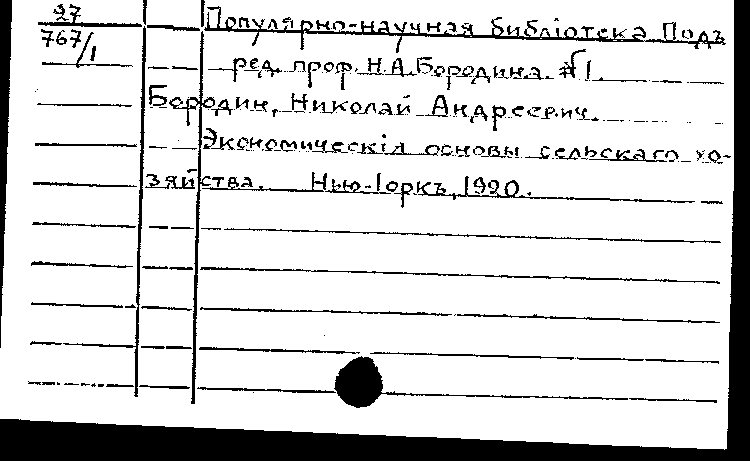 27
767/1
Популярно-научная библіотека Подъ
ред. проф. Н.А.Бородина. №1.
Бородин, Николай Андреевич.
Экономическія основы сельскаго хо-
зяйства. Нью-Іоркъ, 1920.